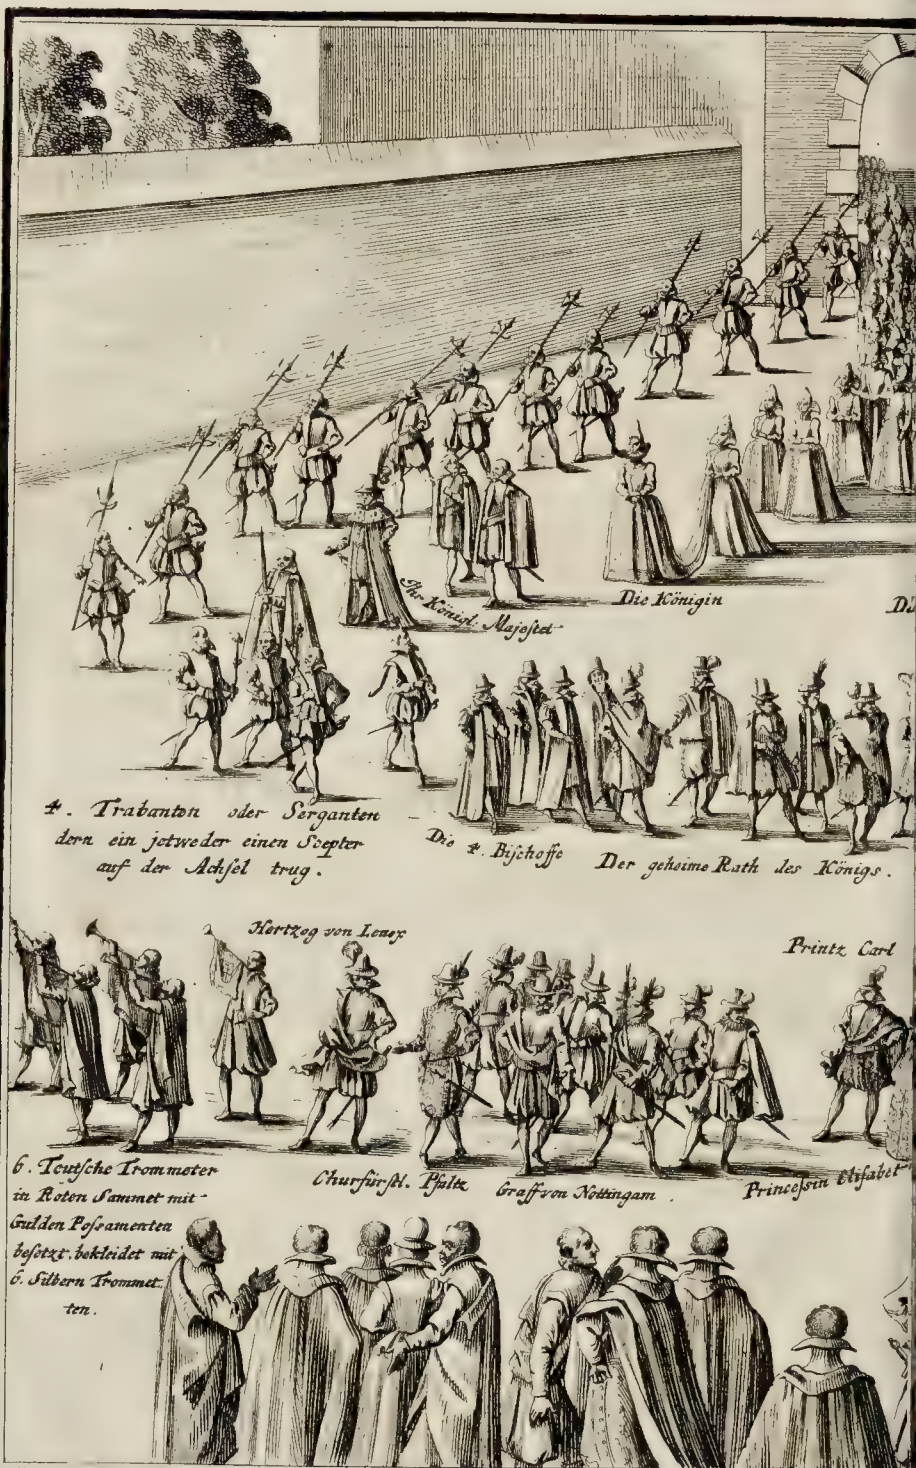 Ihr. Königl. Majestet
Die Königin
4. Trabanten oder Serganten
dern ein jetweder einen Scepter
auf der Achsel trug.
Die 4. Bischoffe
Der geheime Rath des Königs.
Hertzog von Lenox
Printz Carl
6. Teutsche Trommeter
in Roten Sammet mit
Gulden Possamenten
besetzt. bekleidet mit
6. Silbern Trommet
ten.
Churfürstl. Pfaltz
Graff von Nottingam.
Princessin Elisabet